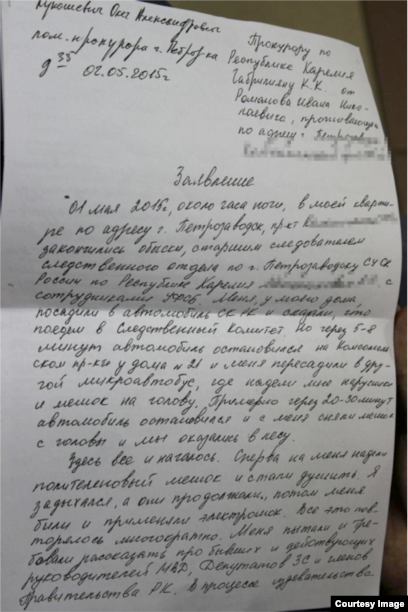 Лукашевич Олег Александрович
пом. прокурора г. Петроз-ка
д 35 02.05.2015г
Прокурору по
Республике Карелия
Габриляну К.К. от
Романова Ивана Нико-
лаевича, проживающ
по адресу г. Петрозав
Заявление
01 мая 2015г, около часа ночи, в моей кварти-
ре по адресу г. Петрозаводск, пр-кт
закончились обыски, старшим следователем
следственного отдела по г. Петрозаводску СУ СК
России по Республике Карелия с
сотрудниками УФСБ. Меня, у моего дома,
посадили в автомобиль СК РК и сказали, что
поедем в Следственный Комитет но через 5-8
минут автомобиль остановился на Комсомоль-
ском пр-кте у дома № 21 и меня пересадили в дру-
гой микроавтобус, где надели мне наручники
и мешок на голову. Примерно через 20-30 минут
автомобиль остановился и с меня сняли мешок
с головы и мы оказались в лесу.
Здесь все и началось. Сперва на меня надели
полителеновый мешок и стали душить. Я
задыхался, а они продолжали, потом меня
били и применяли электрошок. Все это пов-
торялось многократно. Меня пытали и тре-
бовали рассказать про бывших и действующих
руководителей МВД, Депутатов ЗС и членов
Правительства РК. В процессе издевательства
Courtesy Image